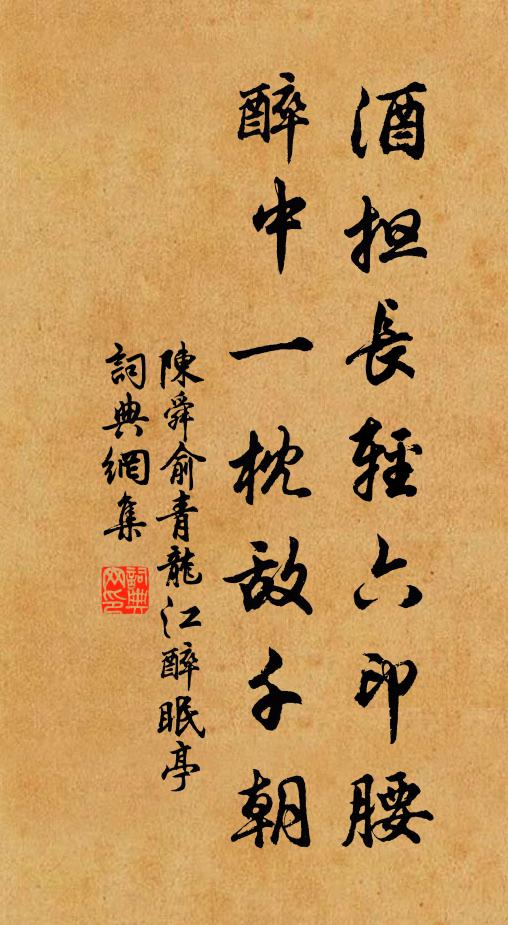 酒担長輕六印腰
醉中一枕敌千朝
陳舜俞青龍江醉眠亭
詞典網集
詞典网印